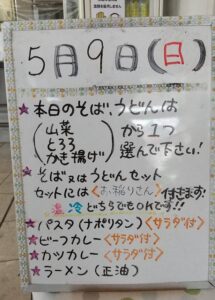 5月9日(日)
★本日のそば、うどんは
(山菜
とろろ
かき揚げ)から1つ
選んで下さい!
★そば又はうどんセット
セットには〈お稲りさん〉付きます!
温 冷 どちらでもOKです!!
★パスタ(ナポリタン)〈サラダ付〉
★ビーフカレー〈サラダ付〉
★カツカレー〈サラダ付〉
★ラーメン(正油)